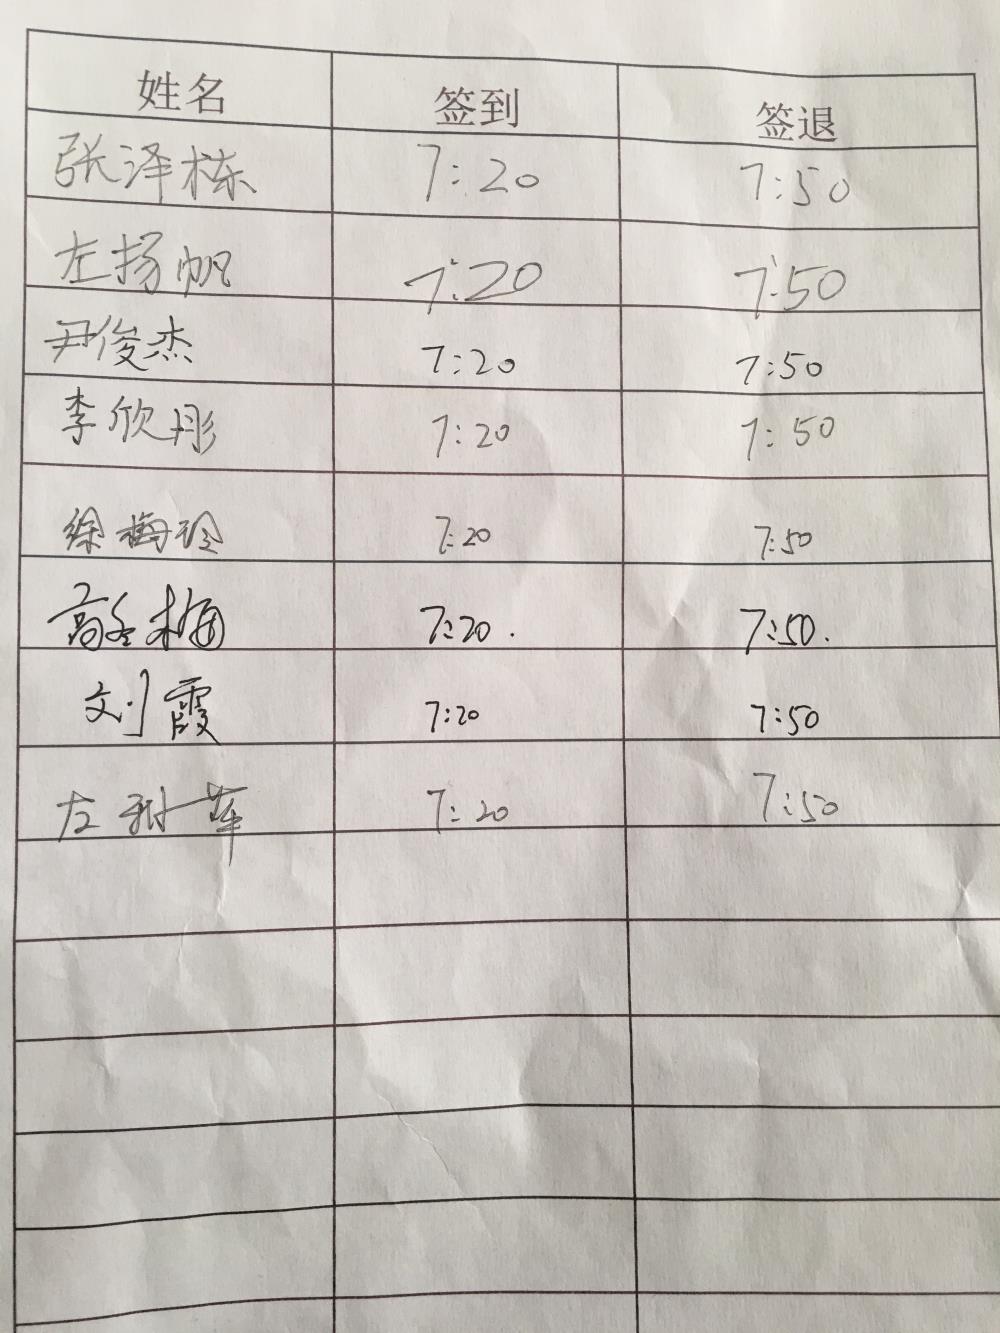 姓名 签到 签退
张泽栋 7:20 7:50
左扬帆 7:20 7:50
尹俊杰 7:20 7:50
李欣彤 7:20 7:50
徐梅玲 7:20 7:50
高冬梅 7:20. 7:50.
刘霞 7:20 7:50
左利苹 7:20 7:50